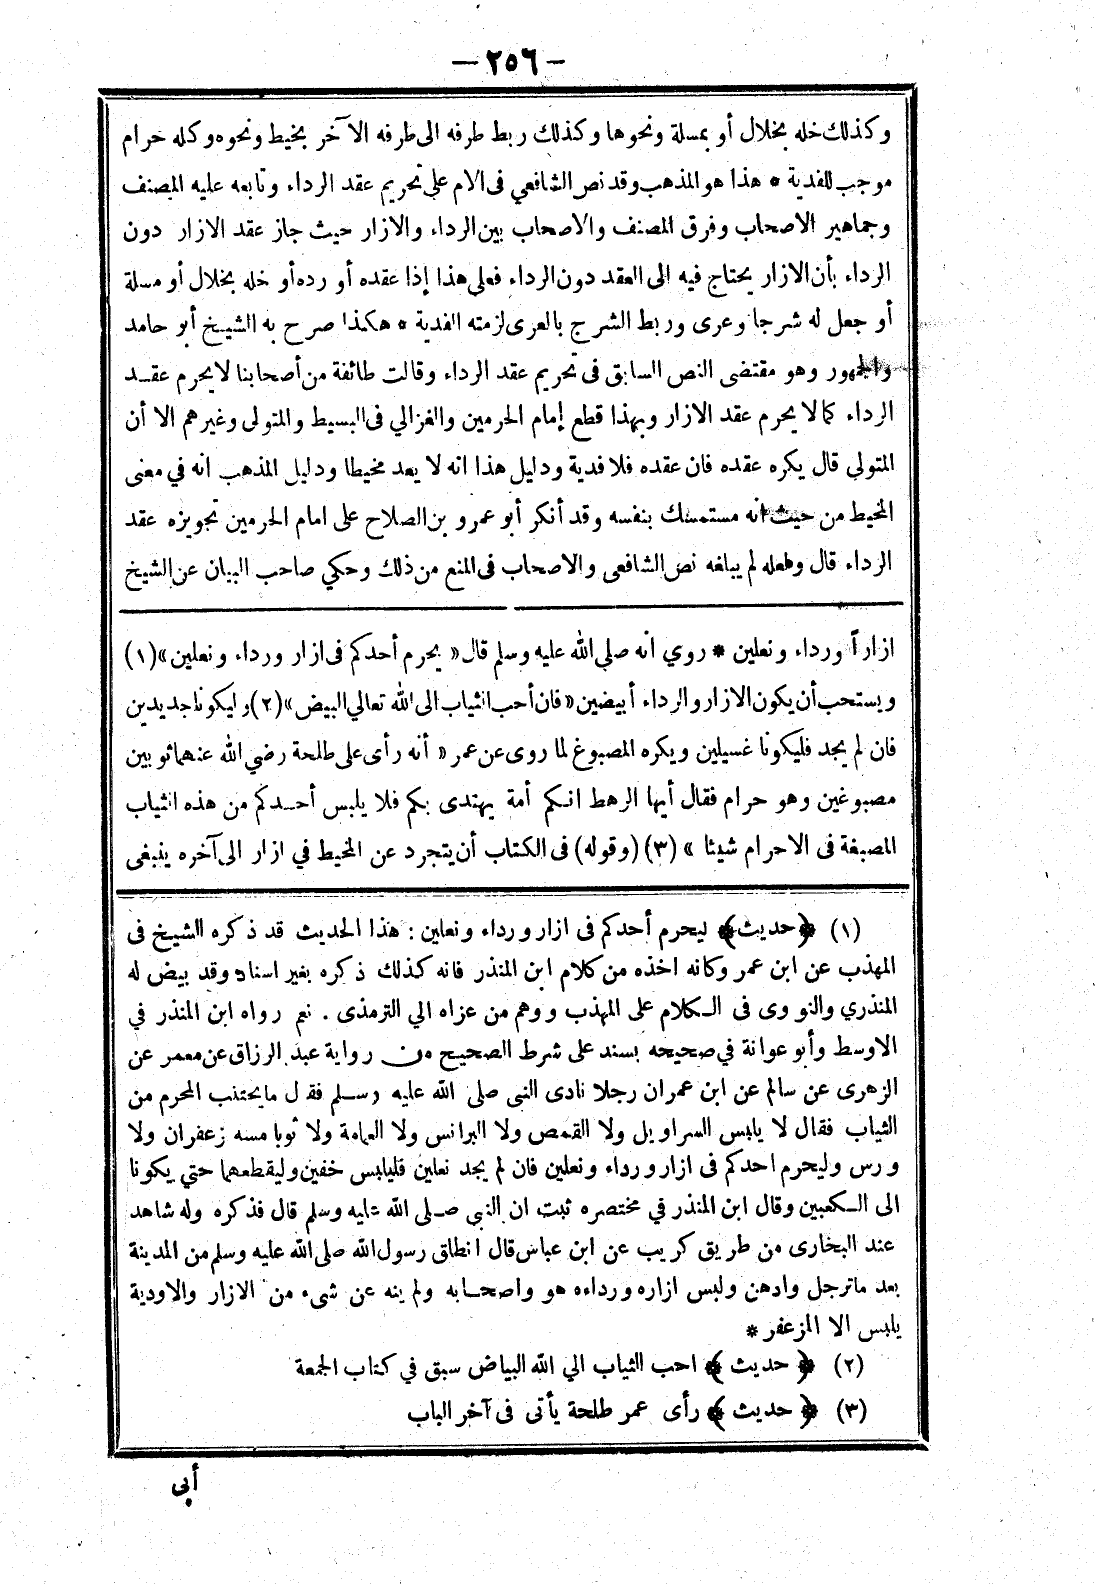 — ٢٥٦ —
وكذلك خله بخلال أو بمسلة ونحوها وكذلك ربط طرفه الى طرفه الآخر بخيط ونحوه وكله حرام
موجب للفدية * هذا هو المذهب وقد نص الشافعي فى الام على تحريم عقد الرداء وتابعه عليه المصنف
وجماهير الاصحاب وفرق المصنف والاصحاب بين الرداء والازار حيث جاز عقد الازار دون
الرداء بأن الازار يحتاج فيه الى العقد دون الرداء فعلى هذا إذا عقده أو رده أو خله بخلال أو مسلة
أو جعل له شرجا وعرى وربط الشرج بالعرى لزمته الفدية * هكذا صرح به الشيخ أبو حامد
والجمهور وهو مقتضى النص السابق فى تحريم عقد الرداء وقالت طائفة من أصحابنا لا يحرم عقد
الرداء كما لا يحرم عقد الازار وبهذا قطع إمام الحرمين والغزالي فى البسيط والمتولى وغيرهم الا أن
المتولى قال يكره عقده فان عقده فلا فدية ودليل هذا انه لا يعد مخيطا ودليل المذهب انه في معنى
المخيط من حيث انه مستمسك بنفسه وقد أنكر أبو عمرو بن الصلاح على امام الحرمين تجويزه عقد
الرداء قال ولعله لم يبلغه نص الشافعى والاصحاب فى المنع من ذلك وحكي صاحب البيان عن الشيخ
ازاراً ورداء ونعلين * روي انه صلى الله عليه وسلم قال « يحرم أحدكم فى ازار ورداء ونعلين » (١)
ويستحب أن يكون الازار والرداء أبيضين « فان أحب الثياب الى الله تعالي البيض » (٢) وليكونا جديدين
فان لم يجد فليكونا غسيلين ويكره المصبوغ لما روى عن عمر « أنه رأى على طلحة رضي الله عنهما ثوبين
مصبوغين وهو حرام فقال أيها الرهط انكم أمة يهتدى بكم فلا يلبس أحدكم من هذه الثياب
المصبغة فى الاحرام شيئا » (٣) (وقوله) فى الكتاب أن يتجرد عن المخيط في ازار الى آخره ينبغى
(١) ﴿ حديث ﴾ ليحرم أحدكم فى ازار ورداء ونعلين : هذا الحديث قد ذكره الشيخ فى
المهذب عن ابن عمر وكانه اخذه من كلام ابن المنذر فانه كذلك ذكره بغير اسناد وقد بيض له
المنذري والنووى فى الكلام على المهذب ووهم من عزاه الي الترمذى . نعم رواه ابن المنذر في
الاوسط وأبو عوانة في صحيحه بسند على شرط الصحيح من رواية عبد الرزاق عن معمر عن
الزهرى عن سالم عن ابن عمر ان رجلا نادى النبى صلى الله عليه وسلم فقال ما يجتنب المحرم من
الثياب فقال لا يلبس السراويل ولا القمص ولا البرانس ولا العمامة ولا ثوبا مسه زعفران ولا
ورس وليحرم احدكم فى ازار ورداء ونعلين فان لم يجد نعلين فليلبس خفين وليقطعهما حتي يكونا
الى الكعبين وقال ابن المنذر في مختصره ثبت ان النبى صلى الله عليه وسلم قال فذكره وله شاهد
عند البخارى من طريق كريب عن ابن عباس قال انطلق رسول الله صلى الله عليه وسلم من المدينة
بعد ما ترجل وادهن ولبس ازاره ورداءه هو واصحابه ولم ينه عن شىء من الازار والاودية
يلبس الا المزعفر *
(٢) ﴿ حديث ﴾ احب الثياب الي الله البياض سبق في كتاب الجمعة
(٣) ﴿ حديث ﴾ رأى عمر طلحة يأتى فى آخر الباب
أبى